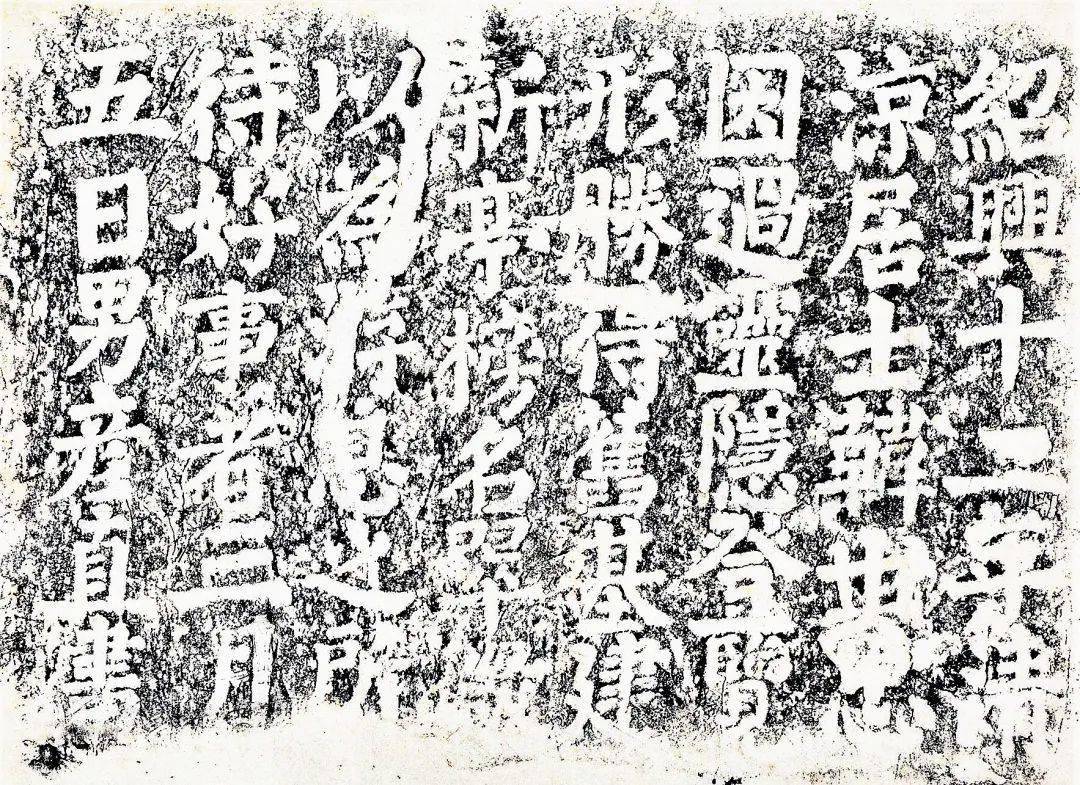 紹興十二年清
涼居士韓世忠
因過靈隱登覽
形勝得舊基建
新亭榜名翠微
以為游息之所
待好事者三月
五日男彥直書